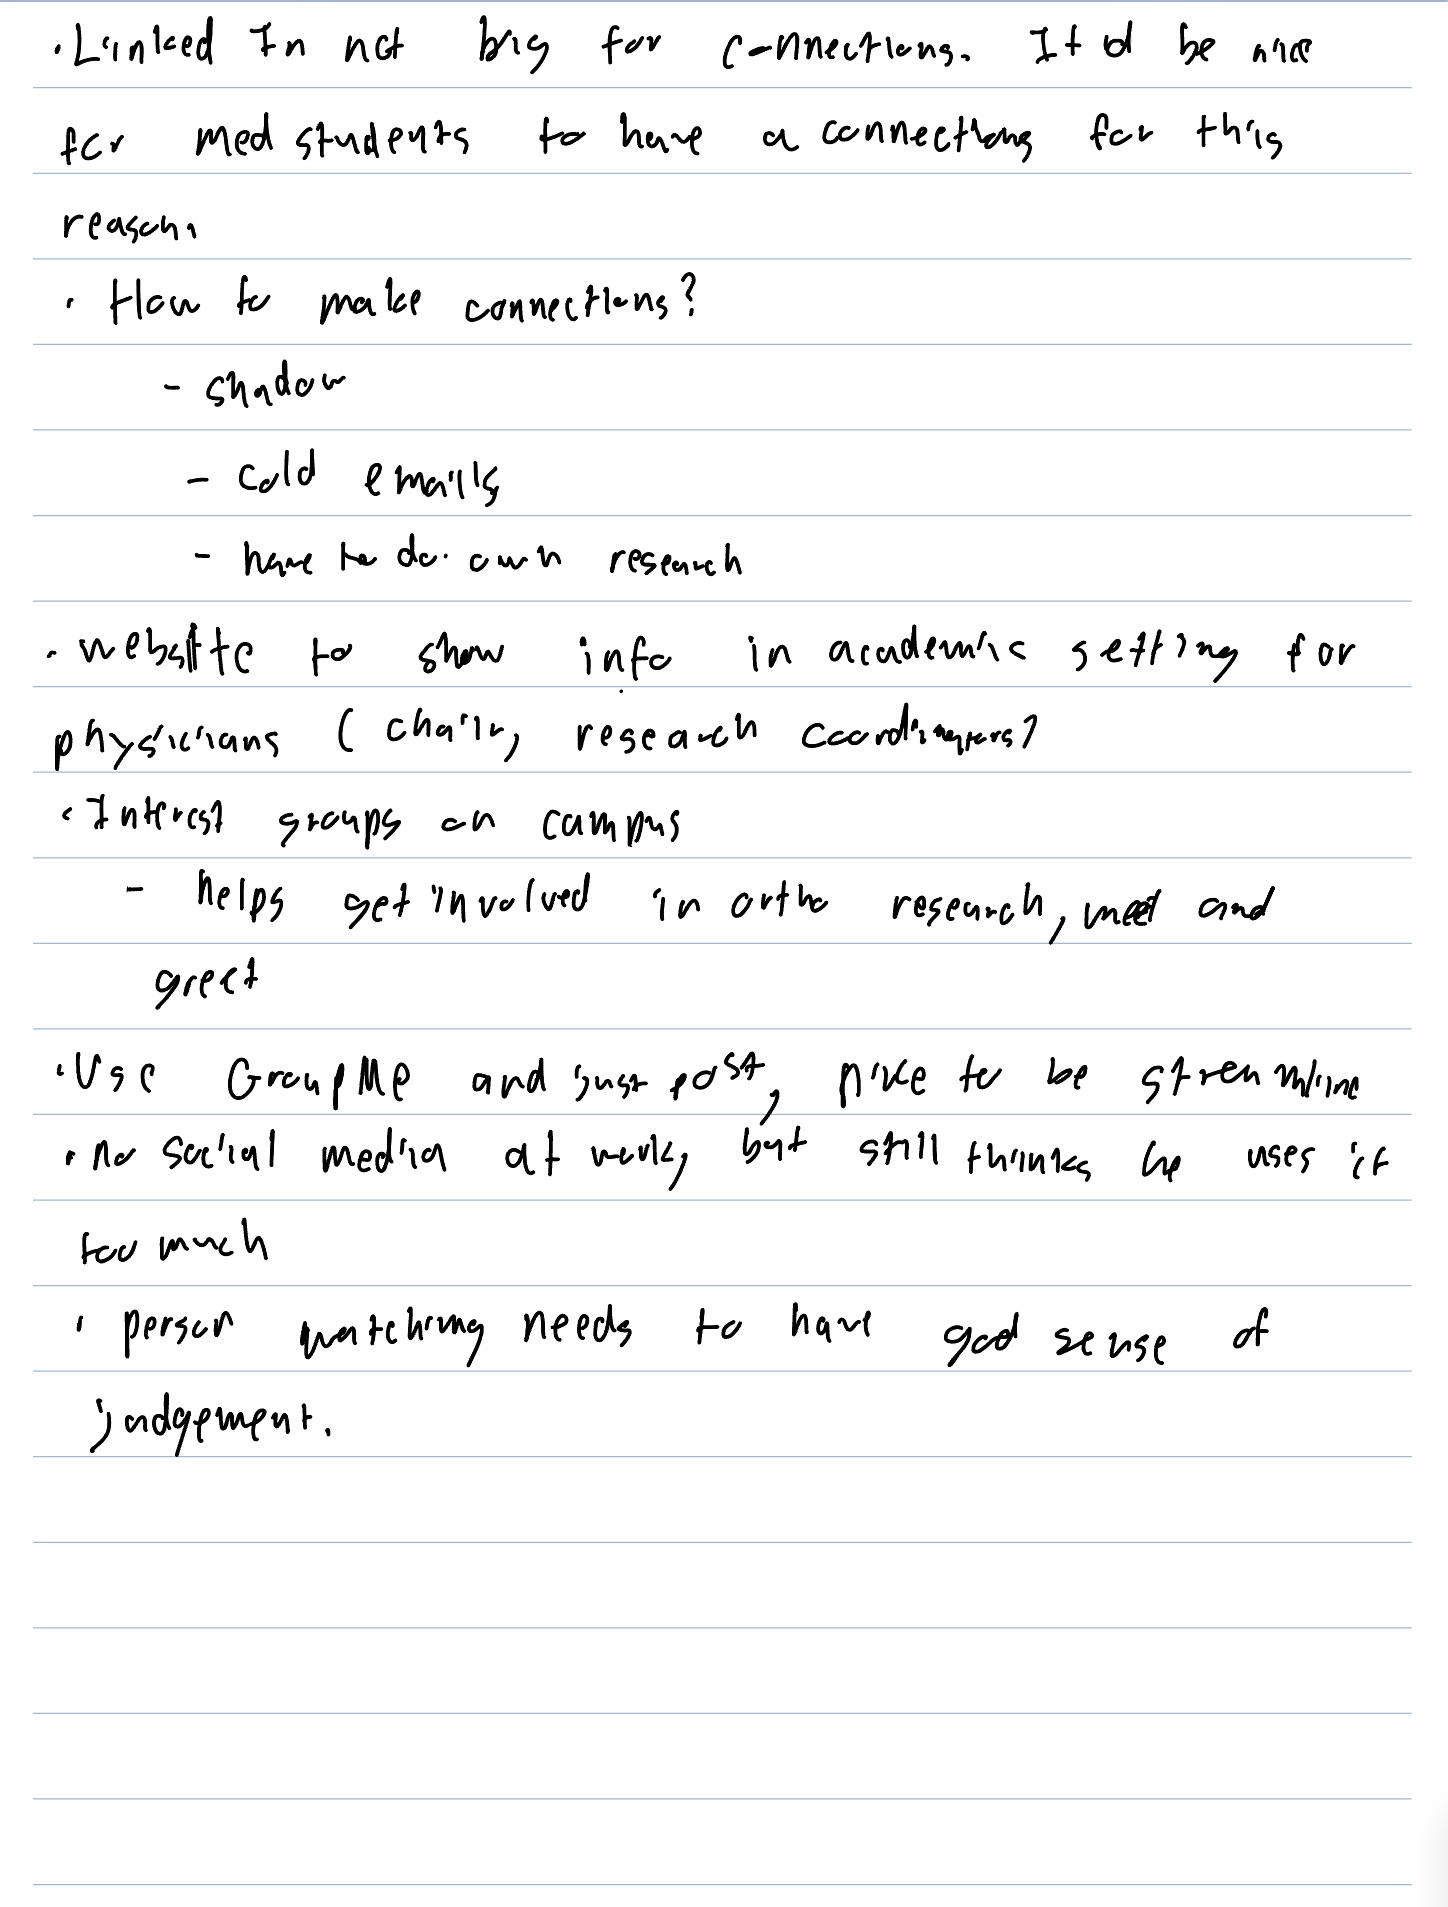 · Linked In not big for connections. It'd be nice
for med students to have a connections for this
reason.
· How to make connections?
- shadow
- cold emails
- have to do own research
· website to show info in academic setting for
physicians (chair, research coordinators?
· Interest groups on campus
- helps get involved in ortho research, meet and
greet
· Use GroupMe and just post, nice to be streamline
· no social media at work, but still thinks he uses it
too much
· person watching needs to have good sense of
judgement.